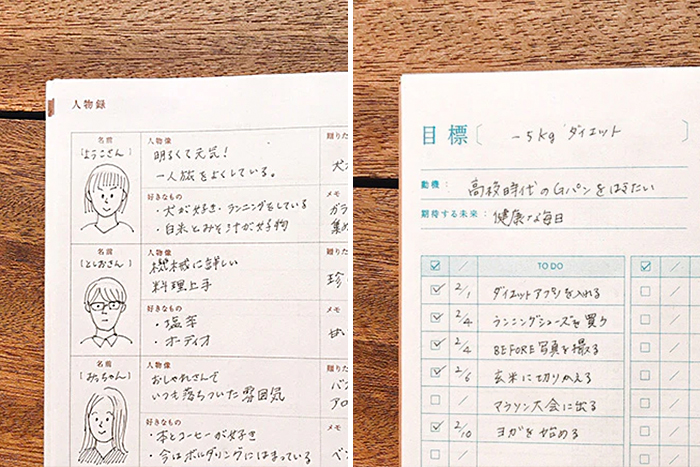 人物録
名前
人物像
贈りた
[ようこさん]
明るくて元気!
一人旅をよくしている。
好きなもの
メモ
・犬が好き・ランニングをしている
・白米とみそ汁が好物
ガラ
集め
名前
人物像
贈りた
[としおさん]
機械に詳しい
料理上手
珍
好きなもの
メモ
・塩茶
・オーディオ
甘
名前
人物像
贈りた
[みっちゃん]
おしゃれさんで
いつも落ちついた雰囲気
好きなもの
メモ
・本とコーヒーが好き
・今はボルダリングにはまっている
目標[ -5kgダイエット ]
動機: 高校時代のGパンをはきたい
期待する未来: 健康な毎日
☑ / TO DO ☑ /
2/1 ダイエットアプリを入れる
2/4 ランニングシューズを買う
2/4 BEFORE写真を撮る
2/6 玄米に切りかえる
/ マラソン大会に出る
2/10 ヨガを始める